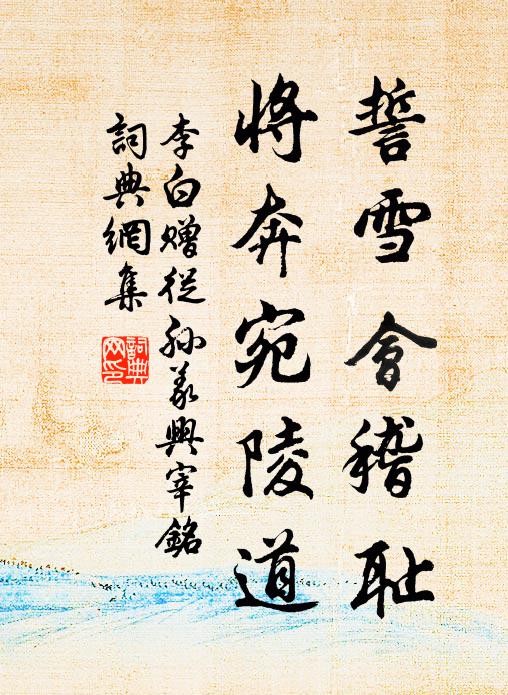 誓雪會稽耻
將奔宛陵道
李白贈從孫義興宰銘
詞典網集
詞典
网印